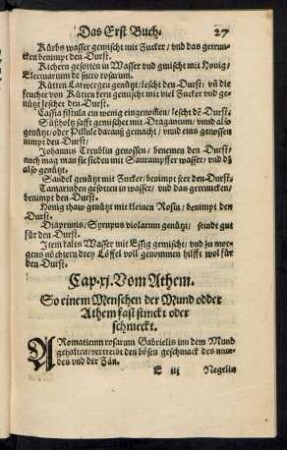 Das Erst Buch. 27
Kürbs wasser gemischt mit Zucker/ vnd das getrun-
cken benimpt den Durst.
Kichern gesotten in Wasser vnd gmischt mit Honig/
Electuarium de succo rosarum.
Kütten Latwergen genützt/ lescht den Durst/ vñ die
feuchte von Kütten kern gemischt mit viel Zucker vnd ge-
nützt leschet den Durst.
Cassia fistula ein wenig eingenoffen/ lescht dē Durst/
Süßholtz safft gemischet mit Dragantum/ vnnd also
genützt/ oder Pillule darauß gemacht/ vnnd eins genossen
nimpt den Durst/
Johannis Treublin genossen/ benemen den Durst/
auch mag man sie sieden mit Saurampffer wasser/ vnd dz
also genützt.
Sandel genützt mit Zucker/ benimpt seer den Durst.
Tamarinden gesotten in wasser/ vnd das getruncken/
benimpt den Durst.
Honig thaw genützt mit kleinen Rosin/ benimpt den
Durst.
Diaprunis/ Syrupus violarum genützt/ seindt gut
für den Durst.
Item kalts Wasser mit Essig gemischt/ vnd zu mor-
gens nüchtern drey Löffel voll genommen hilfft wol für
den Durst.
Cap. xj. Vom Athem.
So einem Menschen der Mund odder
Athem fast stinckt oder
schmeckt.
ARomaticum rosarum Gabrielis inn dem Mund
gehalten/ vertreibt den bösen geschmack des mun-
des vnd der Zän.
E iij Negelin